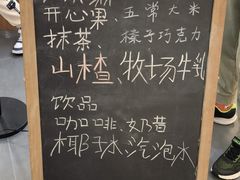 开心果、五常大米
抹茶、榛子巧克力
山楂、牧场牛乳
饮品
咖啡、奶昔
椰子水、汽泡水